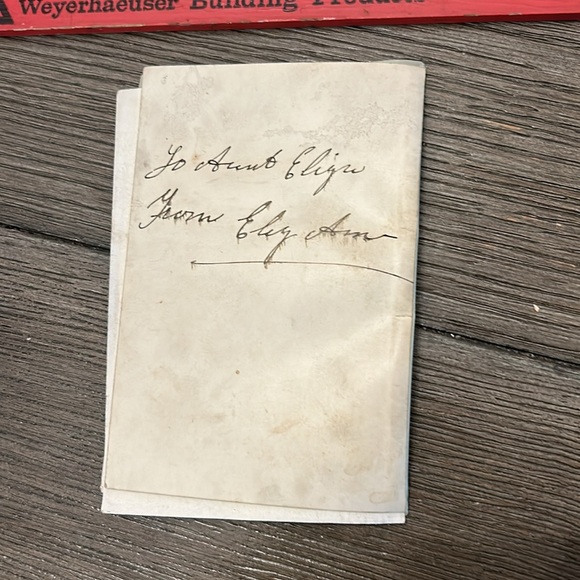 Weyerhaeuser Building Products
To Aunt Eliza
From Eliz Ann